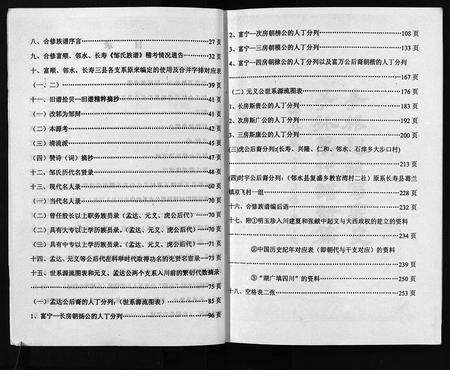 八、合修族谱序言 27页
九、合修富顺、邻水、长寿《邹氏族谱》稽考情况通告 32页
十、富顺、邻水、长寿三县各支系原来编定的使用及合并字排对应表
(一、二) 39页
十一、旧谱拾贝—旧谱精粹摘抄 41页
(一)改邾为邹辩 41页
(二)本源考 42页
(三)清流派 45页
(四)赞诗(词)摘抄 47页
十二、邹氏历代名贤录 48页
十三、现代名人录 60页
(一)当代名人录 70页
(二)曾任股长以上职务族员录(孟达、元义、虎公后代) 70页
(二)具有大专以上学历族员录、(孟达、元义、虎公后代) 71页
(三)具有中专以上学历族员录、(孟达、元义、虎公后代) 71页
十四、孟达、元义等公后代在科举时代取得功名的先贤名官录 73页
十五、世系源流图表和元义、孟达公两个支系入川前的繁衍代数摘录
75页
(一)孟达公后裔的人丁分列:(世系源流图表) 85页
1、富宁一长房朝扬公的人丁分列 96页
2、富宁一次房朝榜公的人丁分列 108页
3、富宁一三房朝模公的人丁分列 133页
4、富宁一四房朝禄公的人丁分列以及富万公后裔朝楷的人丁分列
167页
(二)元义公世系源流图表 176页
1、长房斯贵公的人丁分列 183页
2、次房斯广公的人丁分列 192页
3、三房斯康公的人丁分列 200页
(三)虎公后裔分列:(长寿、兴隆、仁和、邻水、石滓乡大步口村)
213页
(四)时宇公后裔分列:(邻水县复盛乡教官湾村二社)原系长寿县葛兰
镇京飞村一组 228页
十六、合修族谱编后语 232页
十七、附①明玉珍入川建夏和张献中起义与大西政权的建立的资料
234页
②中国历史纪年对应表(即朝代与干支对应)的资料
239页
③“湖广填四川”的资料 250页
十八、空格表二张 253页